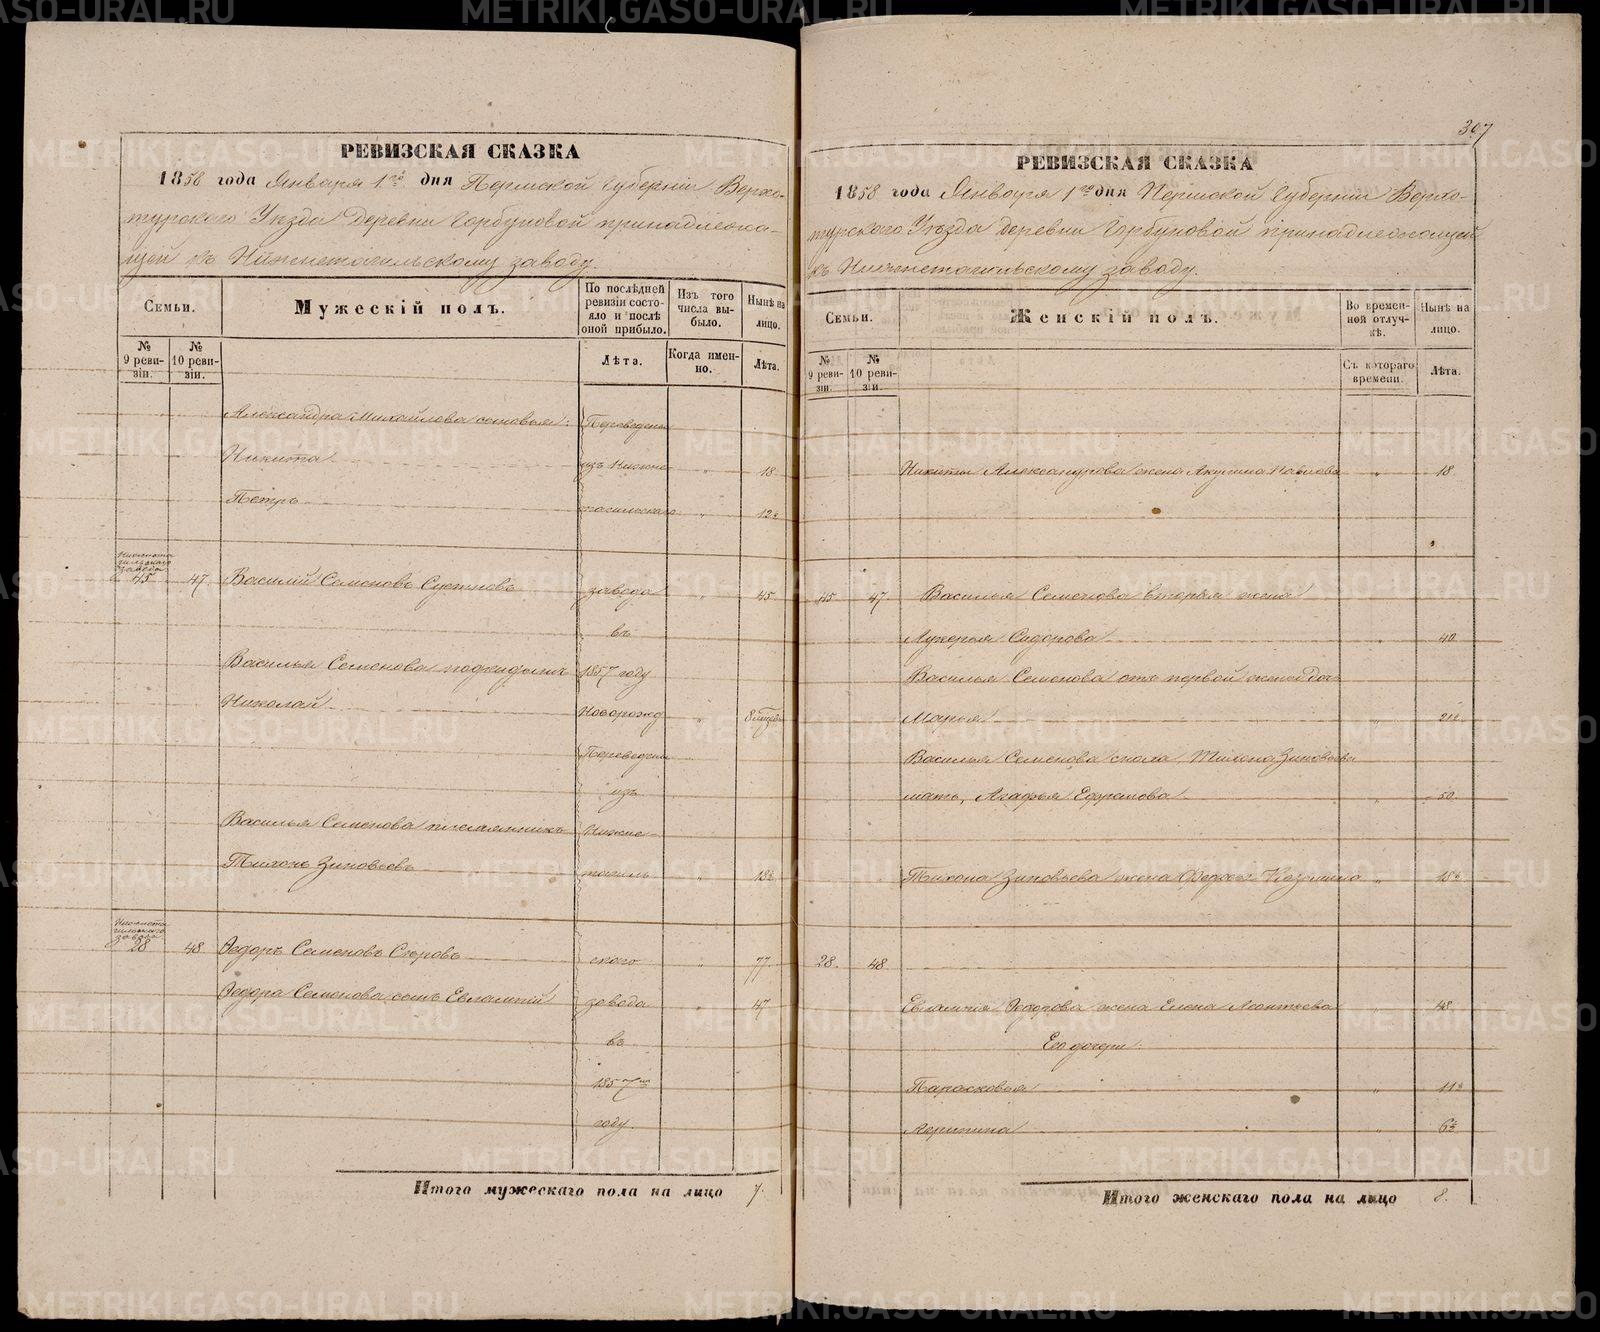 РЕВИЗСКАЯ СКАЗКА
1858 года Января 1го дня Пермской Губерніи Верхо-
турского Уѣзда деревни Горбуновой принадлежа-
щей къ Нижнетагильскому заводу.
Семьи.
Мужескій полъ.
По послѣдней ревизіи состо-яло и послѣ оной прибыло.
Изъ того числа вы-было.
Нынѣ на лицо.
№ 9 реви-зіи.
№ 10 реви-зіи.
Лѣта.
Когда имен-но.
Лѣта.
Александра Михайлова сыновья: Переведены
Никита изъ Нижне- " 18
Петръ тагильскаго " 12½
Нижнета
гильскаго
завода
45 47. Василій Семеновъ завода " 45
въ
Василья Семенова подкидышъ 1857 году
Николай Новорожд " 8 мѣсяц
Переведены
изъ
Василья Семенова племянникъ Нижне-
Тихонъ Зиновьевъ тагиль " 18½
Нижнета
гильскаго
завода
28 48 Ѳедоръ Семеновъ скаго " 77
Ѳедора Семенова сынъ Евлампій завода " 47
въ
1857мъ
году.
Итого мужескаго пола на лицо 7.
307
РЕВИЗСКАЯ СКАЗКА
1858 года Января 1го дня Пермской Губерніи Верхо-
турского Уѣзда деревни Горбуновой принадлежащей
къ Нижнетагильскому заводу.
Семьи.
Женскій полъ.
Во времен-ной отлуч-кѣ.
Нынѣ на лицо.
№ 9 реви-зіи.
№ 10 реви-зіи.
Съ котораго времени.
Лѣта.
Никиты Александрова жена Акулина Павлова " 18
45 47 Василья Семенова вторая жена
Лукерья Сидорова 40
Василья Семенова отъ первой жены доч
Марья " 21½
Василья Семенова сноха, Тихона Зиновьева
мать, Агафья Ефремова " 50
Тихона Зиновьева жена Козмина " 18½
28. 48.
Евлампія Ѳедорова жена Елена Леонтьева " 48
Его дочери:
Парасковья " 11½
6½
Итого женскаго пола на лицо 8.
METRIKI.GASO-URAL.RU